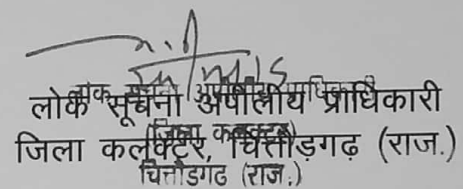 लोक सूचना अपीलीय प्राधिकारी
जिला कलक्टर, चित्तौड़गढ़ (राज.)
(जिला कलक्टर)
चित्तौडगढ (राज.)